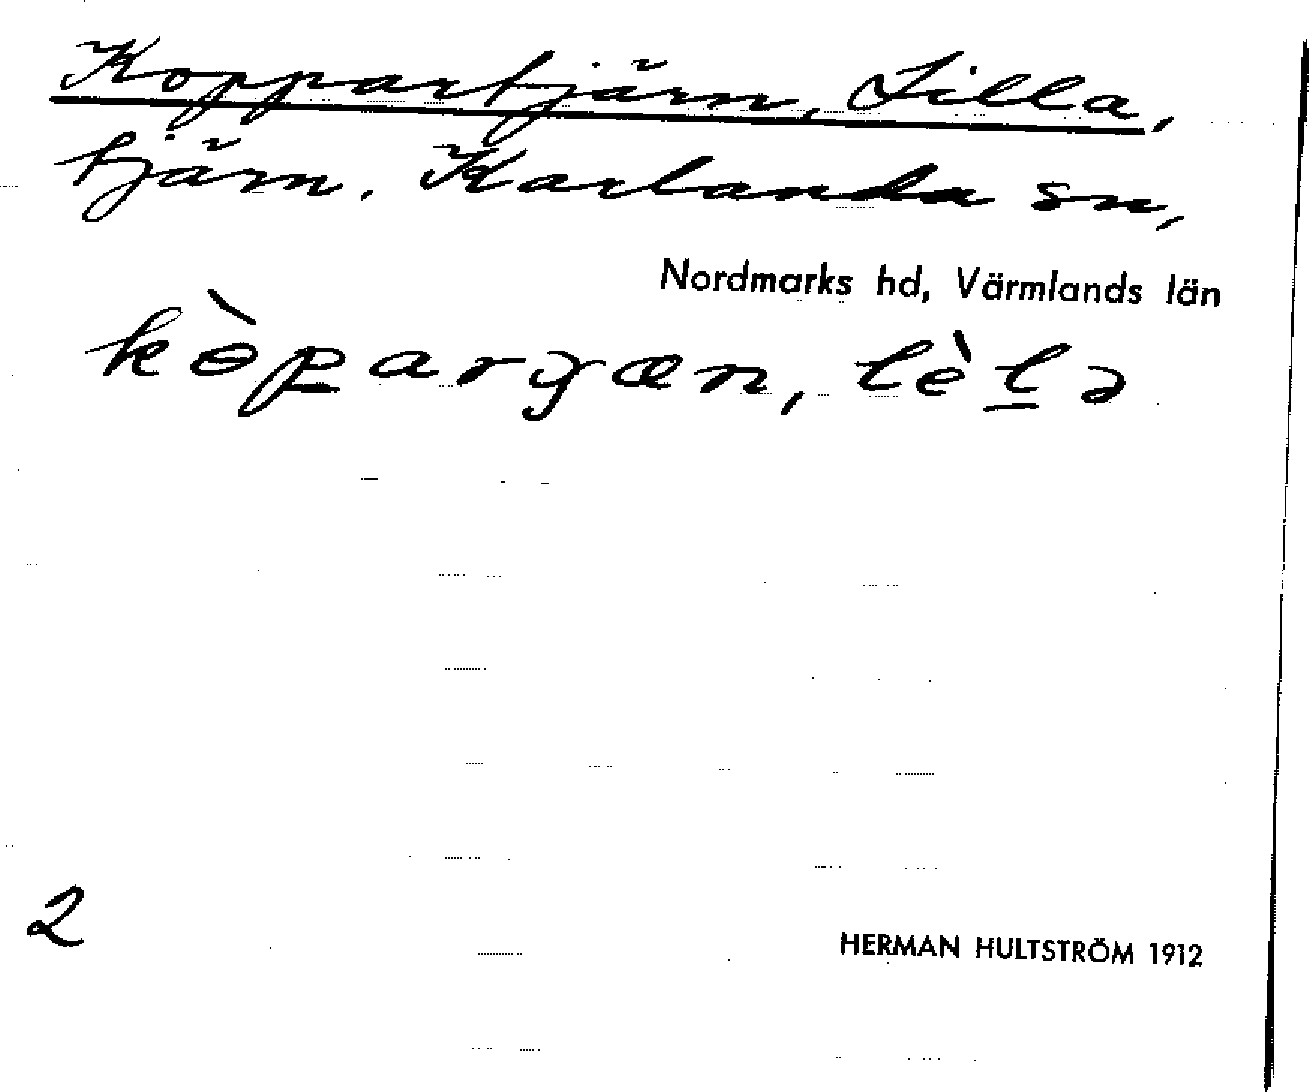 Koppartjärn, Lilla,
tjärn. Karlanda sn,
Nordmarks hd, Värmlands län
kɵ̀p̲arɣæn, lèl̲ə
2
HERMAN HULTSTRÖM 1912